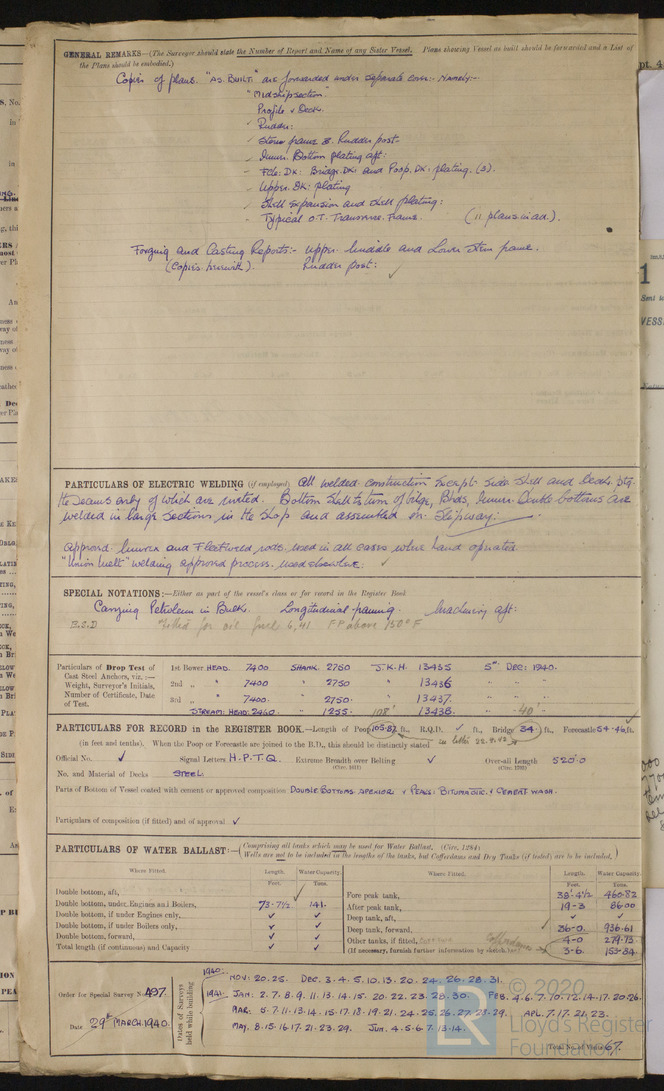 GENERAL REMARKS—(The Surveyor should state the Number of Report and Name of any Sister Vessel. Plans showing Vessel as built should be forwarded and a List of
the Plans should be embodied.)
Copies of plans. "AS BUILT" are forwarded under separate cover:- Namely:-
"Midship section"
Profile & Decks.
Rudder:
Stern frame & Rudder post-
Inner Bottom plating aft:
Fcle: Dk: Bridge. Dk: and Poop. Dk: plating. (3).
Upper. Dk: plating
Shell expansion and shell plating:
Typical O.T. Transverse. Frame. (11 plans in all).
Forging and Casting Reports:- Upper. Middle and Lower Stern frame.
(Copies herewith). Rudder post:
PARTICULARS OF ELECTRIC WELDING (if employed) All welded construction except side shell and
the seams only of which are riveted. Bottom shell to turn of bilge, Bhds, Inner Double bottoms are
welded in large sections in the shop and assembled on Slipway:
Approved and Fleetweld rods used in all cases where hand operated
"Union Melt" welding approved process. used elsewhere:
SPECIAL NOTATIONS:—Either as part of the vessel's class or for record in the Register Book
Carrying Petroleum in Bulk. Longitudinal framing. Machinery aft:
E.S.D Fitted for oil fuel 6,41 F.P. above 150° F
Particulars of Drop Test of 1st Bower. HEAD. 7400 SHANK. 2750 J.K.H. 13435 5th DEC: 1940.
Cast Steel Anchors, viz.:—
Weight, Surveyor's Initials, 2nd „ " 7400 " 2750 " 13436 " " "
Number of Certificate, Date 3rd „ " 7400. " 2750. " 13437. " " "
of Test. STREAM: HEAD: 2460. " 1255. " 13438. " " "
108' 40'
PARTICULARS FOR RECORD in the REGISTER BOOK.—Length of Poop 105.87 ft., R.Q.D. ✓ ft., Bridge 34. ft., Forecastle 54.46 ft.
(in feet and tenths). When the Poop or Forecastle are joined to the B.D., this should be distinctly stated
Official No. ✓ Signal Letters H.P.T.Q. Extreme Breadth over Belting ✓ Over-all Length 520.0
No. and Material of Decks STEEL.
Parts of Bottom of Vessel coated with cement or approved composition DOUBLE BOTTOMS. APEXIOR & PEAKS: BITUMASTIC. & CEMENT WASH.
Particulars of composition (if fitted) and of approval ✓
PARTICULARS OF WATER BALLAST:—(Comprising all tanks which may be used for Water Ballast. (Circ. 1284)
Wells are not to be included in the lengths of the tanks, but Cofferdams and Dry Tanks (if tested) are to be included.)
Where Fitted. Length. Water Capacity. Where Fitted. Length. Water Capacity.
Feet. Tons. Feet. Tons.
Double bottom, aft, Fore peak tank, 38'-4½ 460.82
Double bottom, under Engines and Boilers, 73-7½ 141. After peak tank, 19-3 86.00
Double bottom, if under Engines only, ✓ ✓ Deep tank, aft, ✓ ✓
Double bottom, if under Boilers only, ✓ ✓ Deep tank, forward, 36-0. 936.61
Double bottom, forward, ✓ ✓ Other tanks, if fitted, Cofferdams 4-0 279.73
Total length (if continuous) and Capacity ✓ ✓ (If necessary, furnish further information by sketch.) 3-6. 153.84
Order for Special Survey No. 497.
Date 29th MARCH 1940.
Dates of Surveys held while building
1940. NOV: 20. 25. DEC. 3. 4. 5. 10. 13. 20. 24. 26. 28. 31.
1941. JAN: 2. 7. 8. 9. 11. 13. 14. 15. 20. 22. 23. 28. 30. FEB. 4. 6. 7. 10. 12. 14. 17. 20. 26.
MAR: 5. 7. 11. 13. 14. 15. 17. 18. 19. 21. 24. 25. 26. 27. 28. 29. APL. 7. 17. 21. 23.
MAY. 8. 15. 16. 17. 21. 23. 29. JUN. 4. 5. 6. 7. 13. 14.
Total No. of Visits 67.
© 2020
LR
Lloyd's Register
Foundation